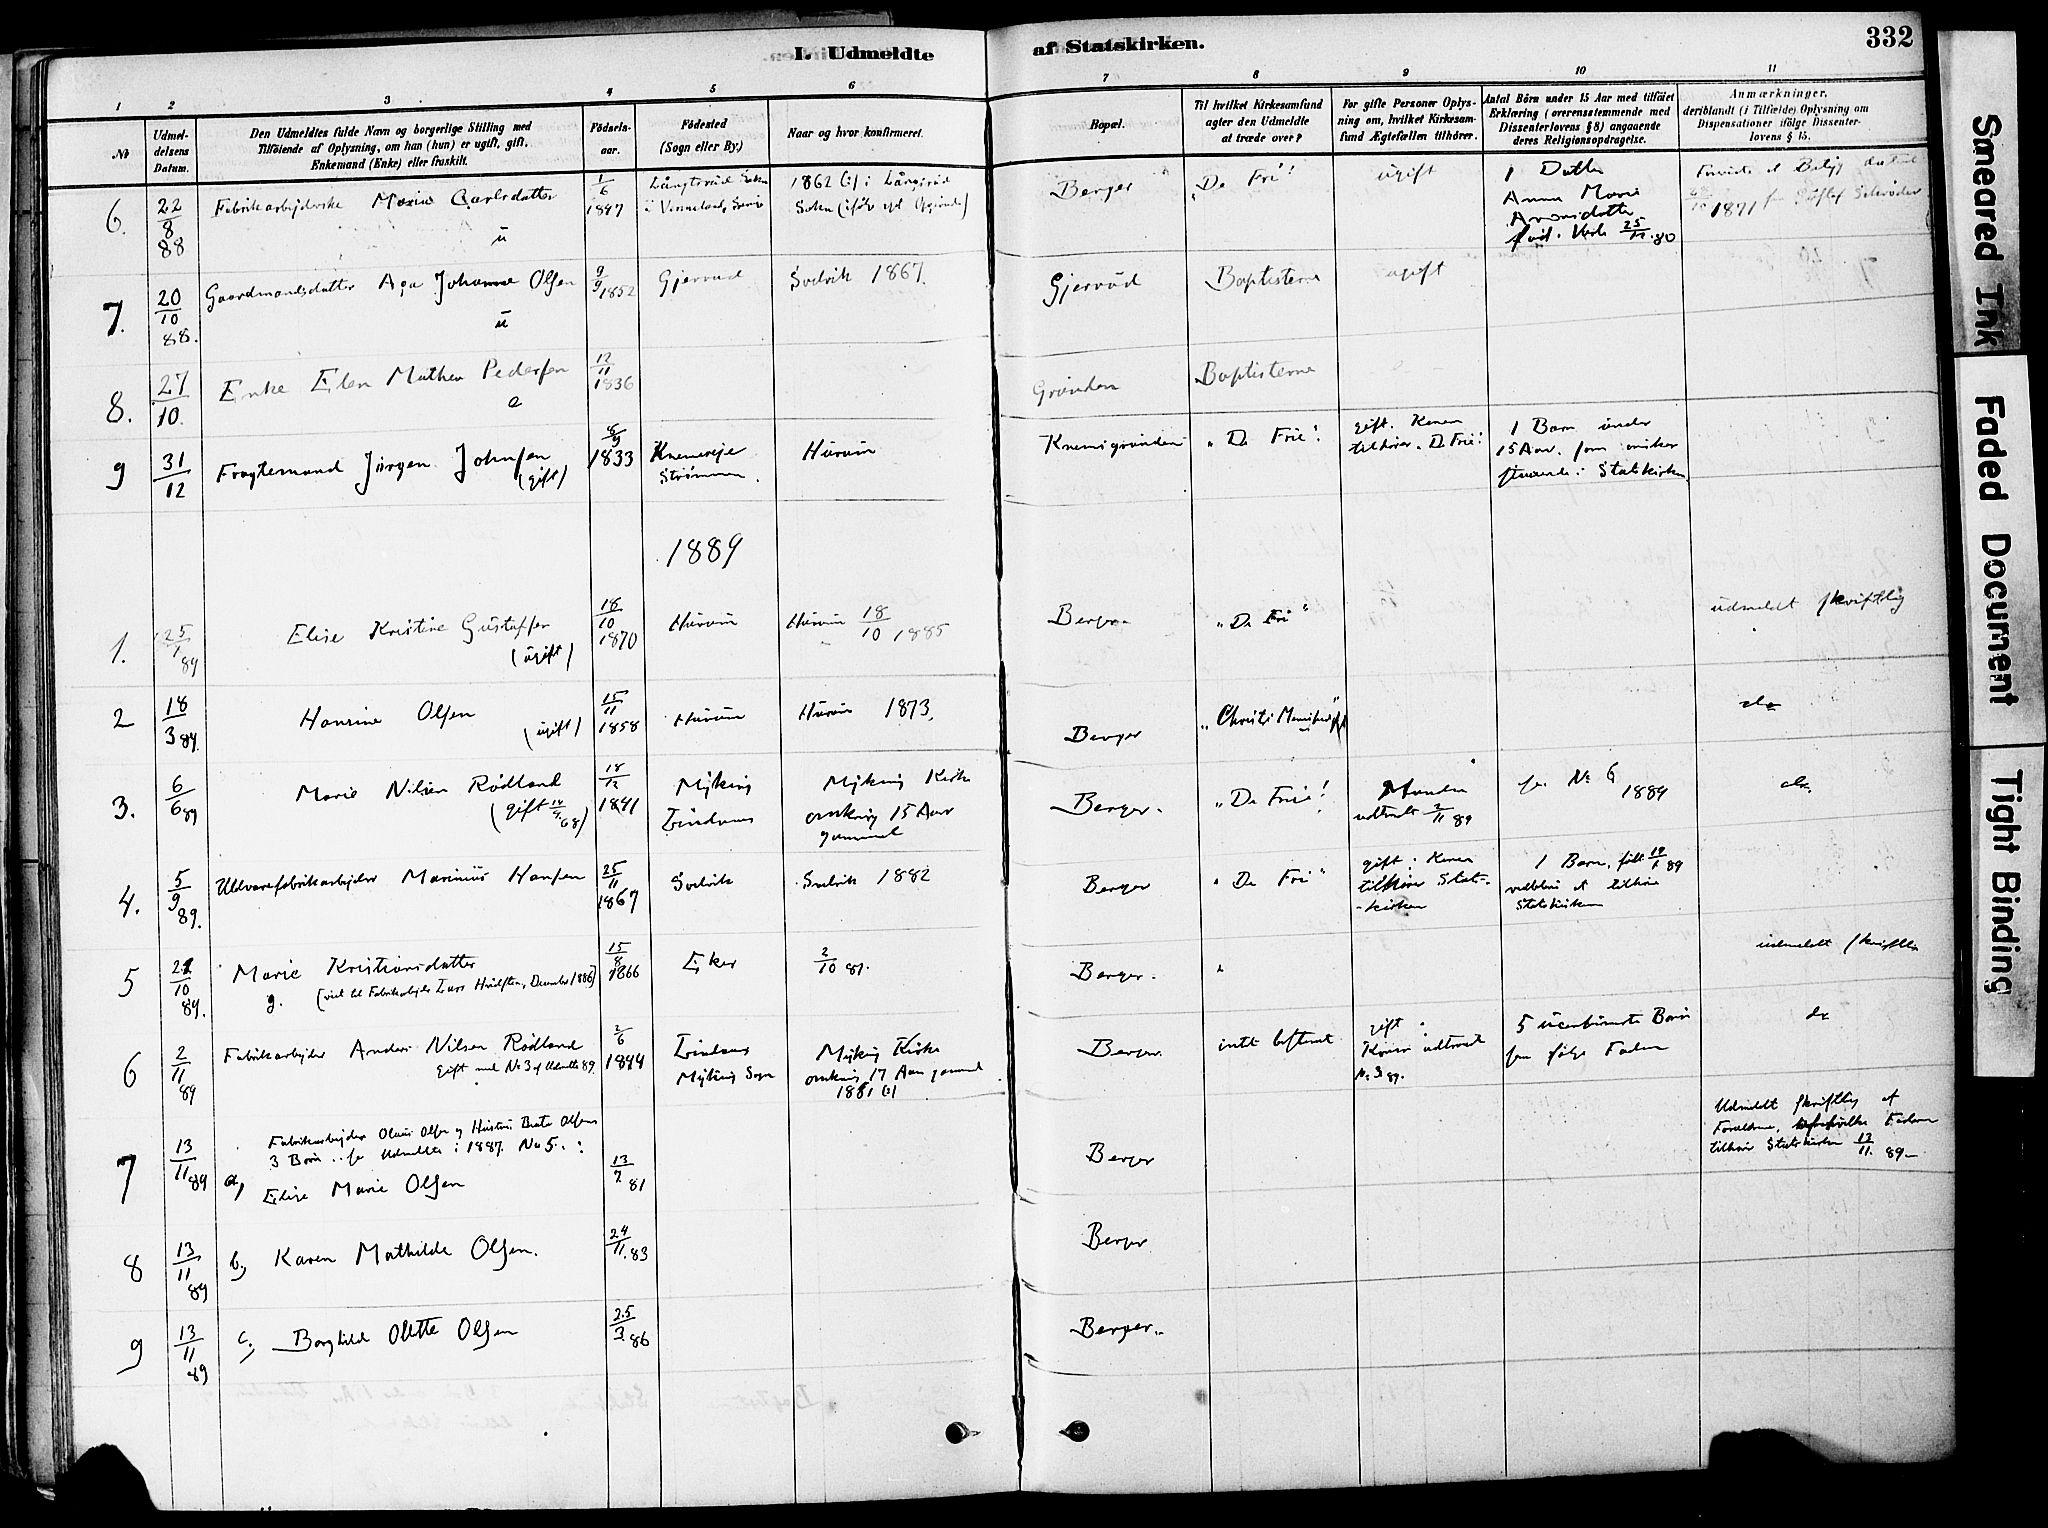 I. Udmeldte af Statskirken. 332
1 2 3 4 5 6 7 8 9 10 11
No
Udmel-
delsens
Datum.
Den Udmeldtes fulde Navn og borgerlige Stilling med
Tilföiende af Oplysning, om han (hun) er ugift, gift,
Enkemand (Enke) eller fraskilt.
Födsels-
aar.
Födested
(Sogn eller By.)
Naar og hvor konfirmeret.
Bopæl.
Til hvilket Kirkesamfund
agter den Udmeldte
at træde over?
For gifte Personer Oplys-
ning om, hvilket Kirkesam-
fund Ægtefællen tilhörer.
Antal Börn under 15 Aar med tilföiet
Erklæring (overensstemmende med
Dissenterlovens § 8) angaaende
deres Religionsopdragelse.
Anmærkninger,
deriblandt (i Tilfælde) Oplysning om
Dispensationer ifölge Dissenter-
lovens § 15.
6. 22/8 88 Fabrikarbejderske Maria Carlsdatter u 1/6 1847
1862 Berger "De Fri" ugift
1 Datter
Anna Marie
25/12 80
1871
7. 20/10 88. Gaardmandsdatter Aga Johanne Olsen u 9/9 1852 Gjerød Sodvik 1867. Gjerød Baptisterne ugift
8. 27/10. Enke Elen Mathea Pedersen e 12/11 1836 Grønden Baptisterne
9 31/12 Fragtemand Jörgen Johnsen (gift) 8/9 1833 Knemereje
Strömmen. Hurum Knemigrunden "De Frie" gift. Konen
tilhører "De Frie"
1 Barn under
15 Aar, som
Statskirken
1889
1. 25/1 89 Elise Kristine Gustafsen (ugift) 18/10 1870 Hurum Hurum 18/10 1885 Berger "De Fri" udmeldt skriftlig
2 18/3 89. Hansine Olsen (ugift) 15/11 1858 Hurum Hurum 1873. Berger "Christi Menighed" do
3. 6/6 89 Marie Nilsen Rødland 18/12 1841 Myking Myking Kirke Berger. "De Frie" Manden
(gift 68) Lindaas omkring 15 Aar udtraadt 2/11 89
gammel
No 6 1889 do.
4. 5/9 89. Uldvarefabrikarbejder Marinius Hansen 25/11 1867 Sodvik Sodvik 1882 Berger "De Fri" gift. Konen
tilhører Stats-
-kirken
1 Barn, født 19/1 89
vedbliver at tilhøre
Statskirken
5 21/10 89. Marie Kristiansdatter 15/8 1866 Eker 2/10 81. Berger. " udmeldt skriftlig
g. (viet til Fabrikarbejder Lars Hvidsten, December 1886)
6 2/11 89 Fabrikarbejder Anders Nilsen Rødland 2/6 1844 Lindaas Myking Kirke Berger. intet bestemt gift
Gift med No 3 af Udmeldte 89. Myking Sogn omkring 17 Aar gammel
1861 (?) Konen udtraadt
No 3 89.
5 ukonfirmerte Børn
som følge Faderen
do
7 13/11 89 Fabrikarbejder Olaus Olsen og Hustru Beate Olsens
3 Børn .. se Udmeldte i 1887. No 5. :
a, Elise Marie Olsen 13/7 81 Berger
Udmeldt skriftlig af
Forældrene, Faderen
tilhører Statskirken 13/11. 89.
8 13/11 89 b, Karen Mathilde Olsen. 24/11. 83 Berger
9 13/11 89 c, Borghild Olette Olsen 25/3 86 Berger.
Smeared Ink
Faded Document
Tight Binding